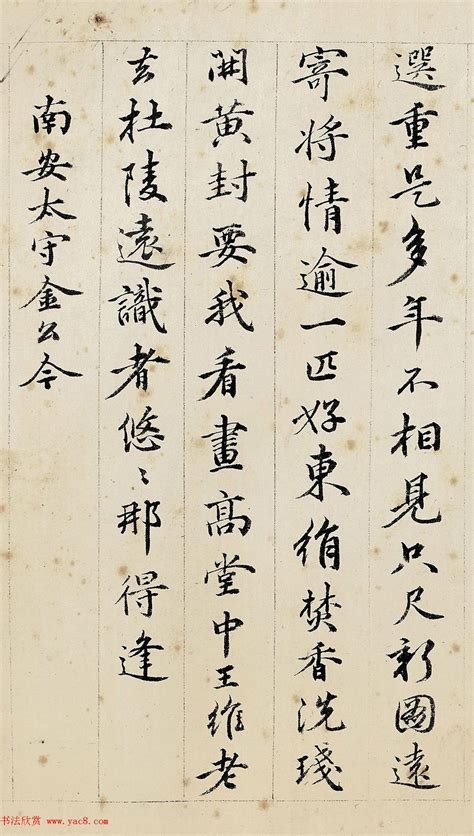 選重是多年不相見只尺新圖遠
寄将情逾一匹好東絹焚香洗琖
開黄封要我看畫高堂中王維老
去杜陵遠識者悠〻那得逢
南安太守金公今
书法欣赏 www.yac8.com